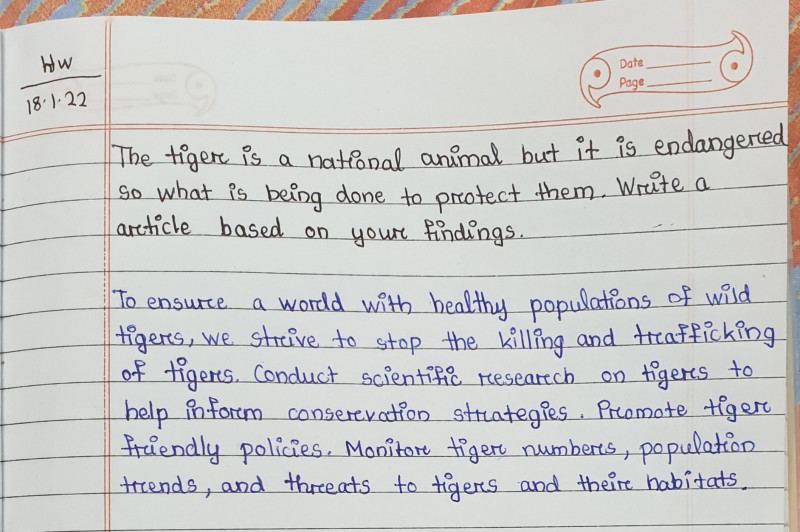 HW
18.1.22
Date
Page
The tiger is a national animal but it is endangered
so what is being done to protect them. Write a
article based on your findings.
To ensure a world with healthy populations of wild
tigers, we strive to stop the killing and trafficking
of tigers. Conduct scientific research on tigers to
help inform conservation strategies. Promote tiger
friendly policies. Monitor tiger numbers, population
trends, and threats to tigers and their habitats.